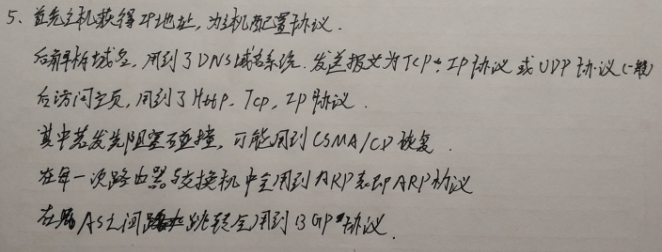 5、首先主机获得IP地址,为主机配置协议.
后解析域名,用到了DNS域名系统.发送报文为TCP+IP协议或UDP协议(一般)
后访问主页,用到了Http、Tcp、IP协议.
其中若发生阻塞碰撞,可能用到CSMA/CD恢复.
在每一次路由器与交换机中会用到ARP和RARP协议
在AS之间跳转会用到BGP协议.